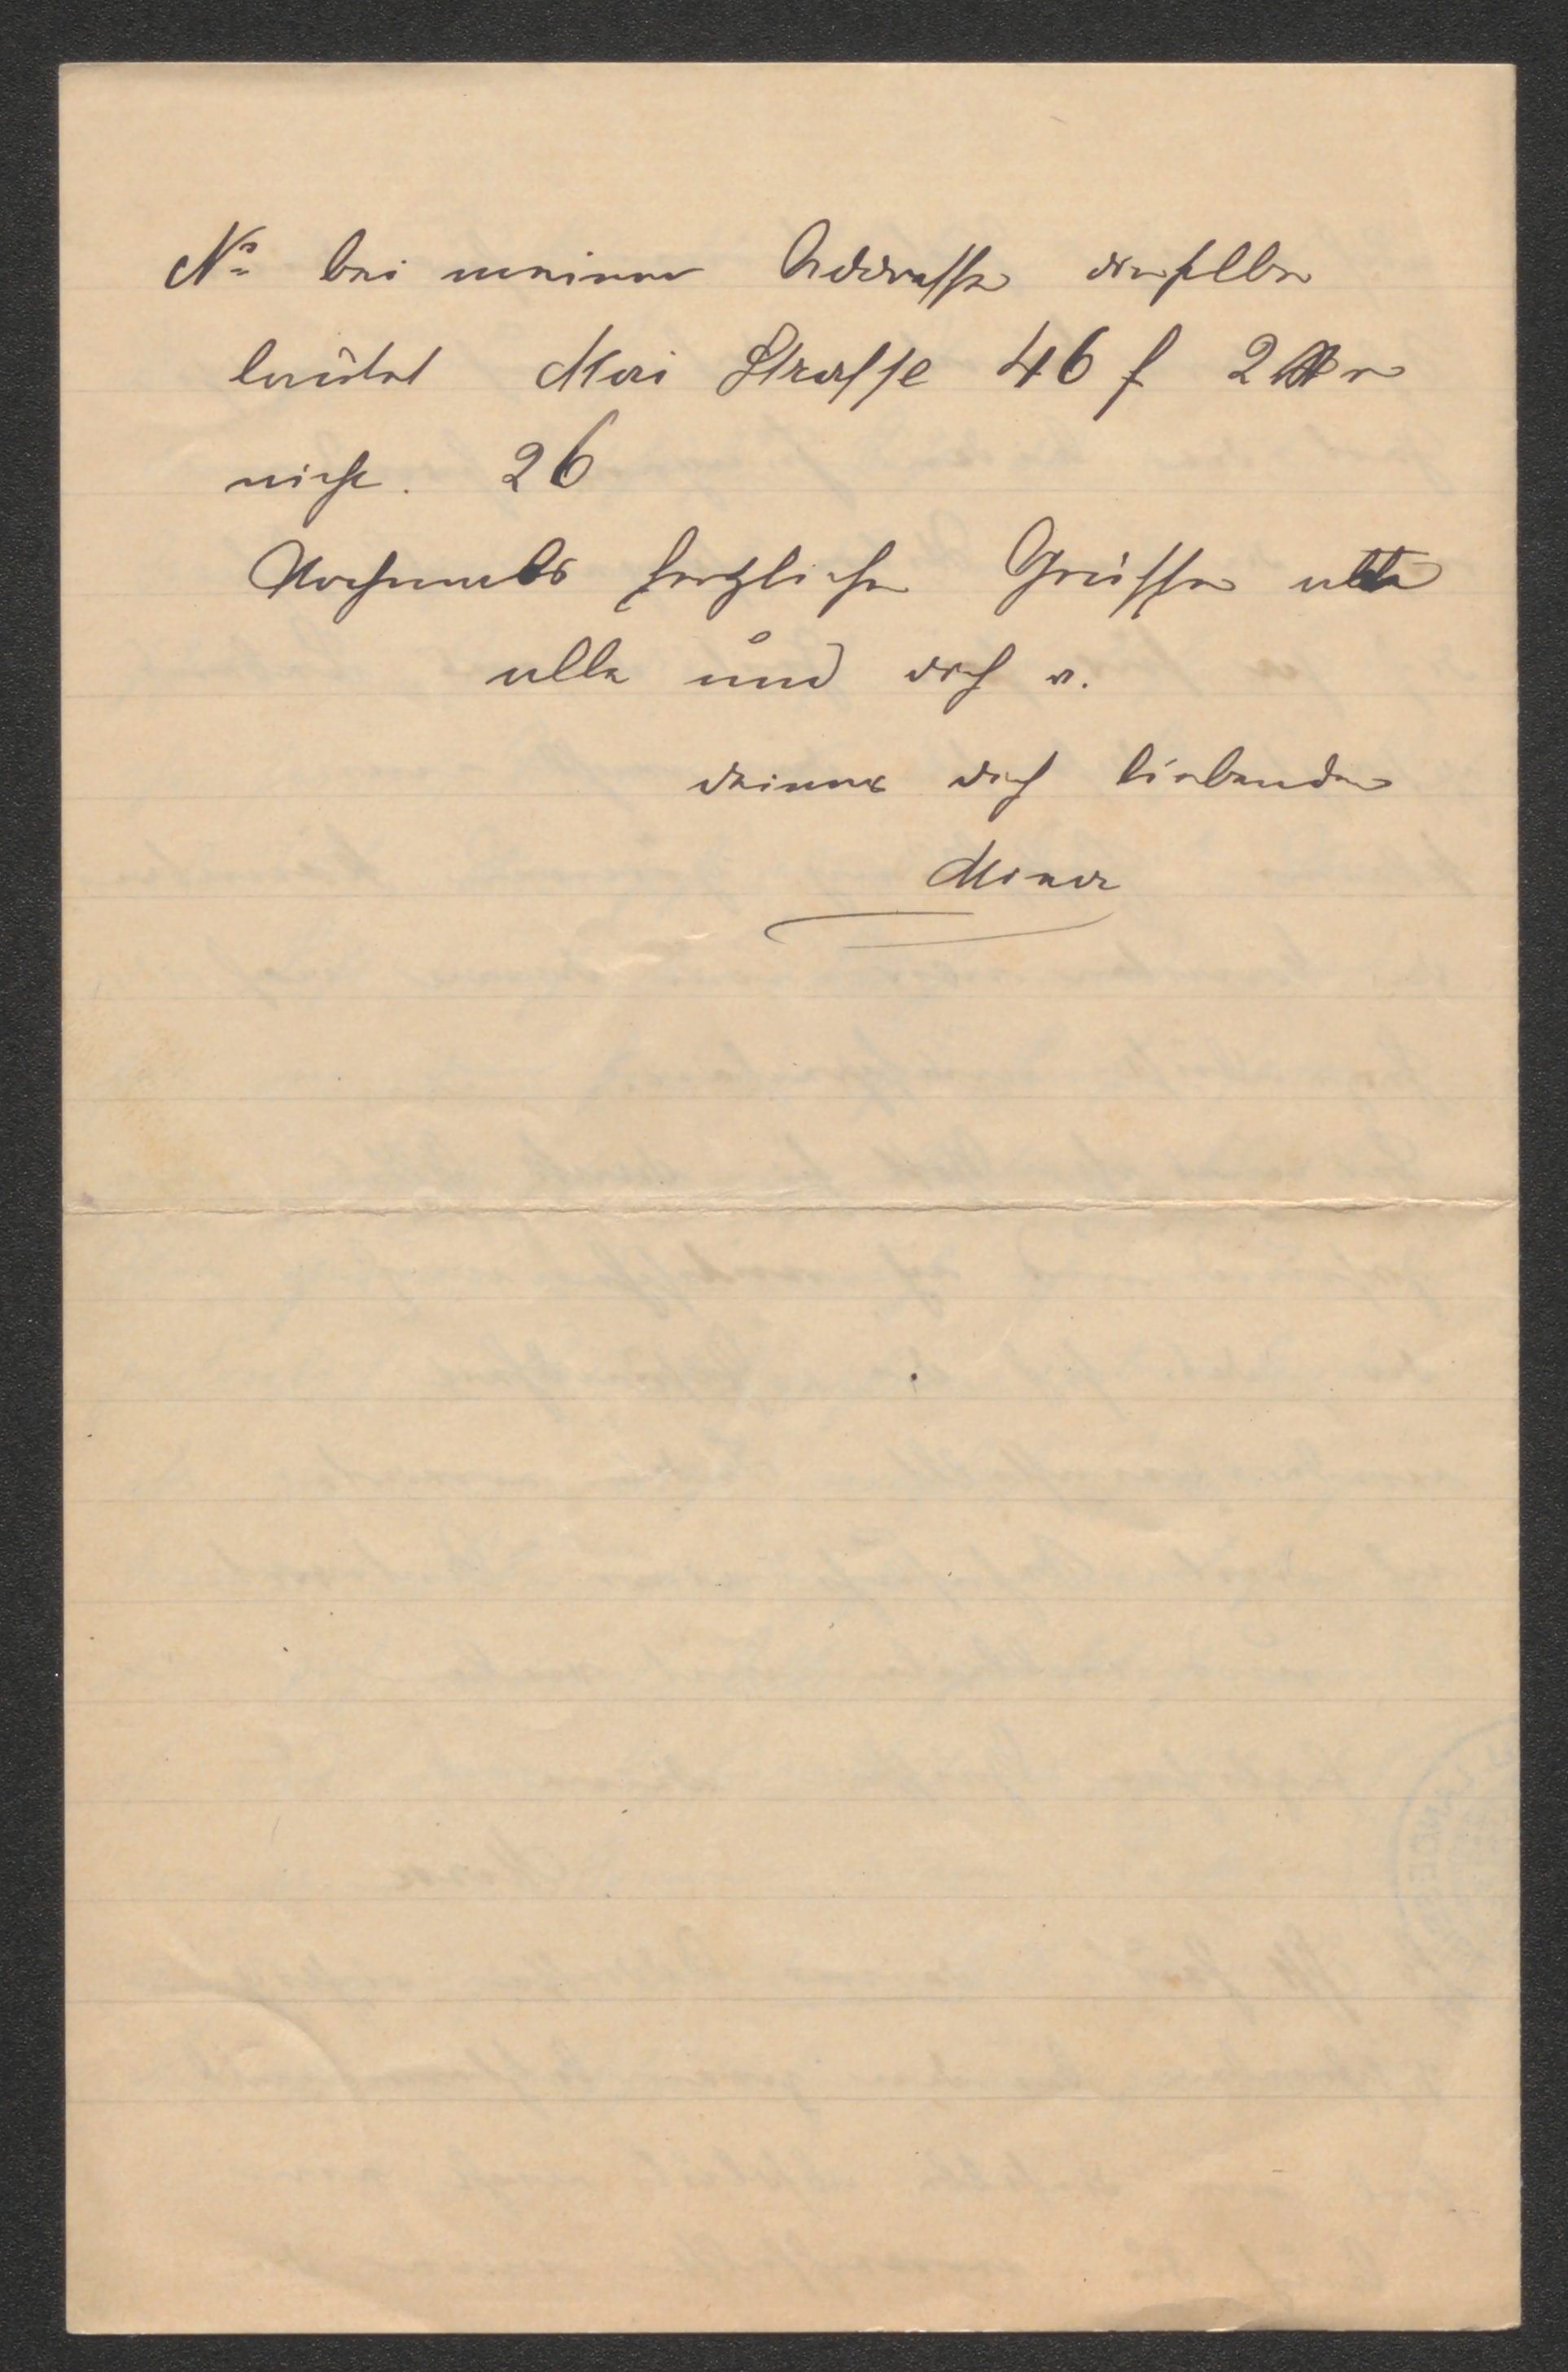 No bei meiner Addresse dieselbe
lautet Mai Strasse 46 f 2
nicht. 26
Nochmals herzliche Grüsse
alle und dich v.
deiner dich liebenden